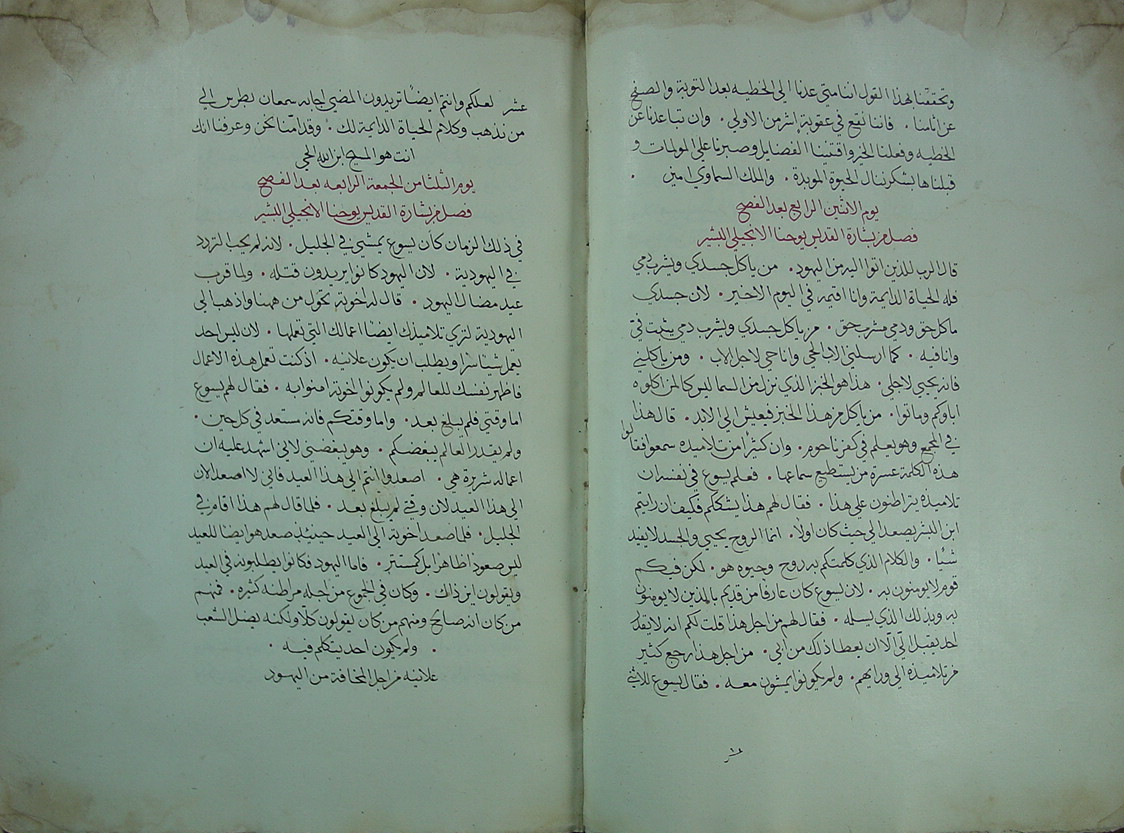 وتحققنا لهذا القول اننا متى عدنا الى الخطيه بعد التوبة والصفح
عن اثامنا ٠ فاننا نقع في عقوبة اشر من الاولى ٠ وان تباعدنا عن
الخطيه وفعلنا الخير واقتنينا الفضايل وصبرنا على المولمات و
قبلناها بشكر ننال الحيوة الموبدة ٠ والملك السماوي امين ٠
يوم الاثنين الرابع بعد الفصح
فصل من بشارة القديس يوحنا الانجيلي البشير
قال الرب للذين اتوا اليه من اليهود ٠ من ياكل جسدي ويشرب دمي
فله الحياة الدايمة وانا اقيمه في اليوم الاخير ٠ لان جسدي
ماكل حق ودمي مشرب حق ٠ من ياكل جسدي ويشرب دمي يثبت فيّ
وانا فيه ٠ كما ارسلني الاب الحي وانا حي لاجل الاب ٠ ومن ياكلني
فانه يحيي لاجلي ٠ هذا هو الخبز الذي نزل من السما ليس كالمن اكلوه
اباوكم وماتوا ٠ من ياكل من هذا الخبز فيعيش الى الابد ٠ قال هذا
في المجمع وهو يعلم في كفرناحوم ٠ وان كثيرًا من تلاميذه سمعوا فقالوا
هذه الكلمة عسرة من يستطيع سماعها ٠ فعلم يسوع في نفسه ان
تلاميذه يتراطنون على هذا ٠ فقال لهم هذا يشككم فكيف ان رايتم
ابن البشر يصعد الى حيث كان اولًا ٠ انما الروح يحيي والجسد لا يفيد
شيًا ٠ والكلام الذي كلمتكم به روح وحيوه هو ٠ لكن فيكم
قوم لا يومنون به ٠ لان يسوع كان عارفا من قديم بالذين لا يومنون
به وبذلك الذي يسلمه ٠ فقال لهم من اجل هذا قلت لكم انه لا يقدر
احد يقبل اليّ الّا ان يعطا ذلك من ابي ٠ من اجل هذا رجع كثير
من تلاميذه الى ورايهم ٠ ولم يكونوا يمشون معه ٠ فقال يسوع للاثني
عشر
عشر لعلكم وانتم ايضًا تريدون المضي اجابه سمعان بطرس الى
من نذهب وكلام الحياة الدايمة لك ٠ وقد امنا نحن وعرفنا انك
انت هو المسيح ابن الله الحي
يوم الثلثا من الجمعة الرابعه بعد الفصح
فصل من بشارة القديس يوحنا الانجيلي البشير
في ذلك الزمان كان يسوع يمشي في الجليل ٠ لانه لم يحب التردد
في اليهودية ٠ لان اليهود كانوا يريدون قتله ٠ ولما قرب
عيد مضال اليهود ٠ قال له اخوته تحول من ههنا واذهب الى
اليهودية لتري تلاميذك ايضًا اعمالك التي تعملها ٠ لان ليس احد
يعمل شيئا سرًا ويطلب ان يكون علانيه ٠ اذ كنت تعمل هذه الاعمال
فاظهر نفسك للعالم ولم يكونوا اخوته امنوا به ٠ فقال لهم يسوع
اما وقتي فلم يبلغ بعد ٠ واما وقتكم فانه مستعد في كل حين ٠
ولم يقدر العالم يبغضكم ٠ وهو يبغضني لاني اشهد عليه ان
اعماله شريرة هي ٠ اصعدوا انتم الى هذا العيد فاني لا اصعد الان
الى هذا العيد لان وقتي لم يبلغ بعد ٠ فلما قال لهم هذا اقام في
الجليل ٠ فلما صعد اخوته الى العيد حينيذٍ صعد هو ايضا للعيد
ليس صعودًا ظاهرًا بل كمستتر ٠ فاما اليهود فكانوا يطلبونه في العيد
ويقولون اين ذاك ٠ وكان في الجموع من اجله مرطنه كثيرة ٠ فمنهم
من كان انه صالح ومنهم من كان يقولون كلّا ولكنه يضل الشعب
٠ ولم يكون احد يتكلم فيه ٠
علانيه من اجل المخافة من اليهود